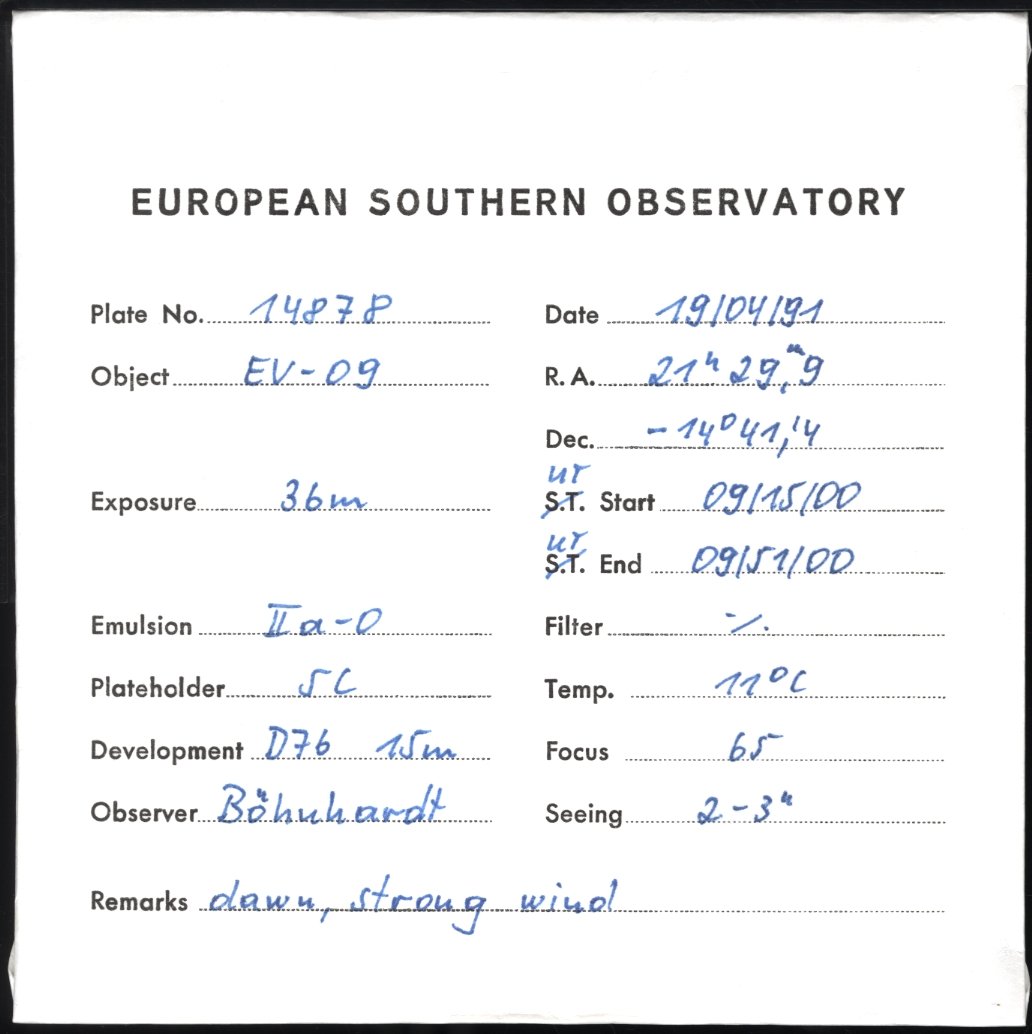 EUROPEAN SOUTHERN OBSERVATORY
Plate No. 14878 Date 19/04/91
Object EV-09 R.A. 21h 29,m9
Dec. -14° 41,'4
UT UT
Exposure 36m S.T. Start 09/15/00
S.T. End 09/51/00
Emulsion IIa-O Filter -/.
Plateholder 5C Temp. 11°C
Development D76 15m Focus 65
Observer Böhnhardt Seeing 2-3"
Remarks dawn, strong wind